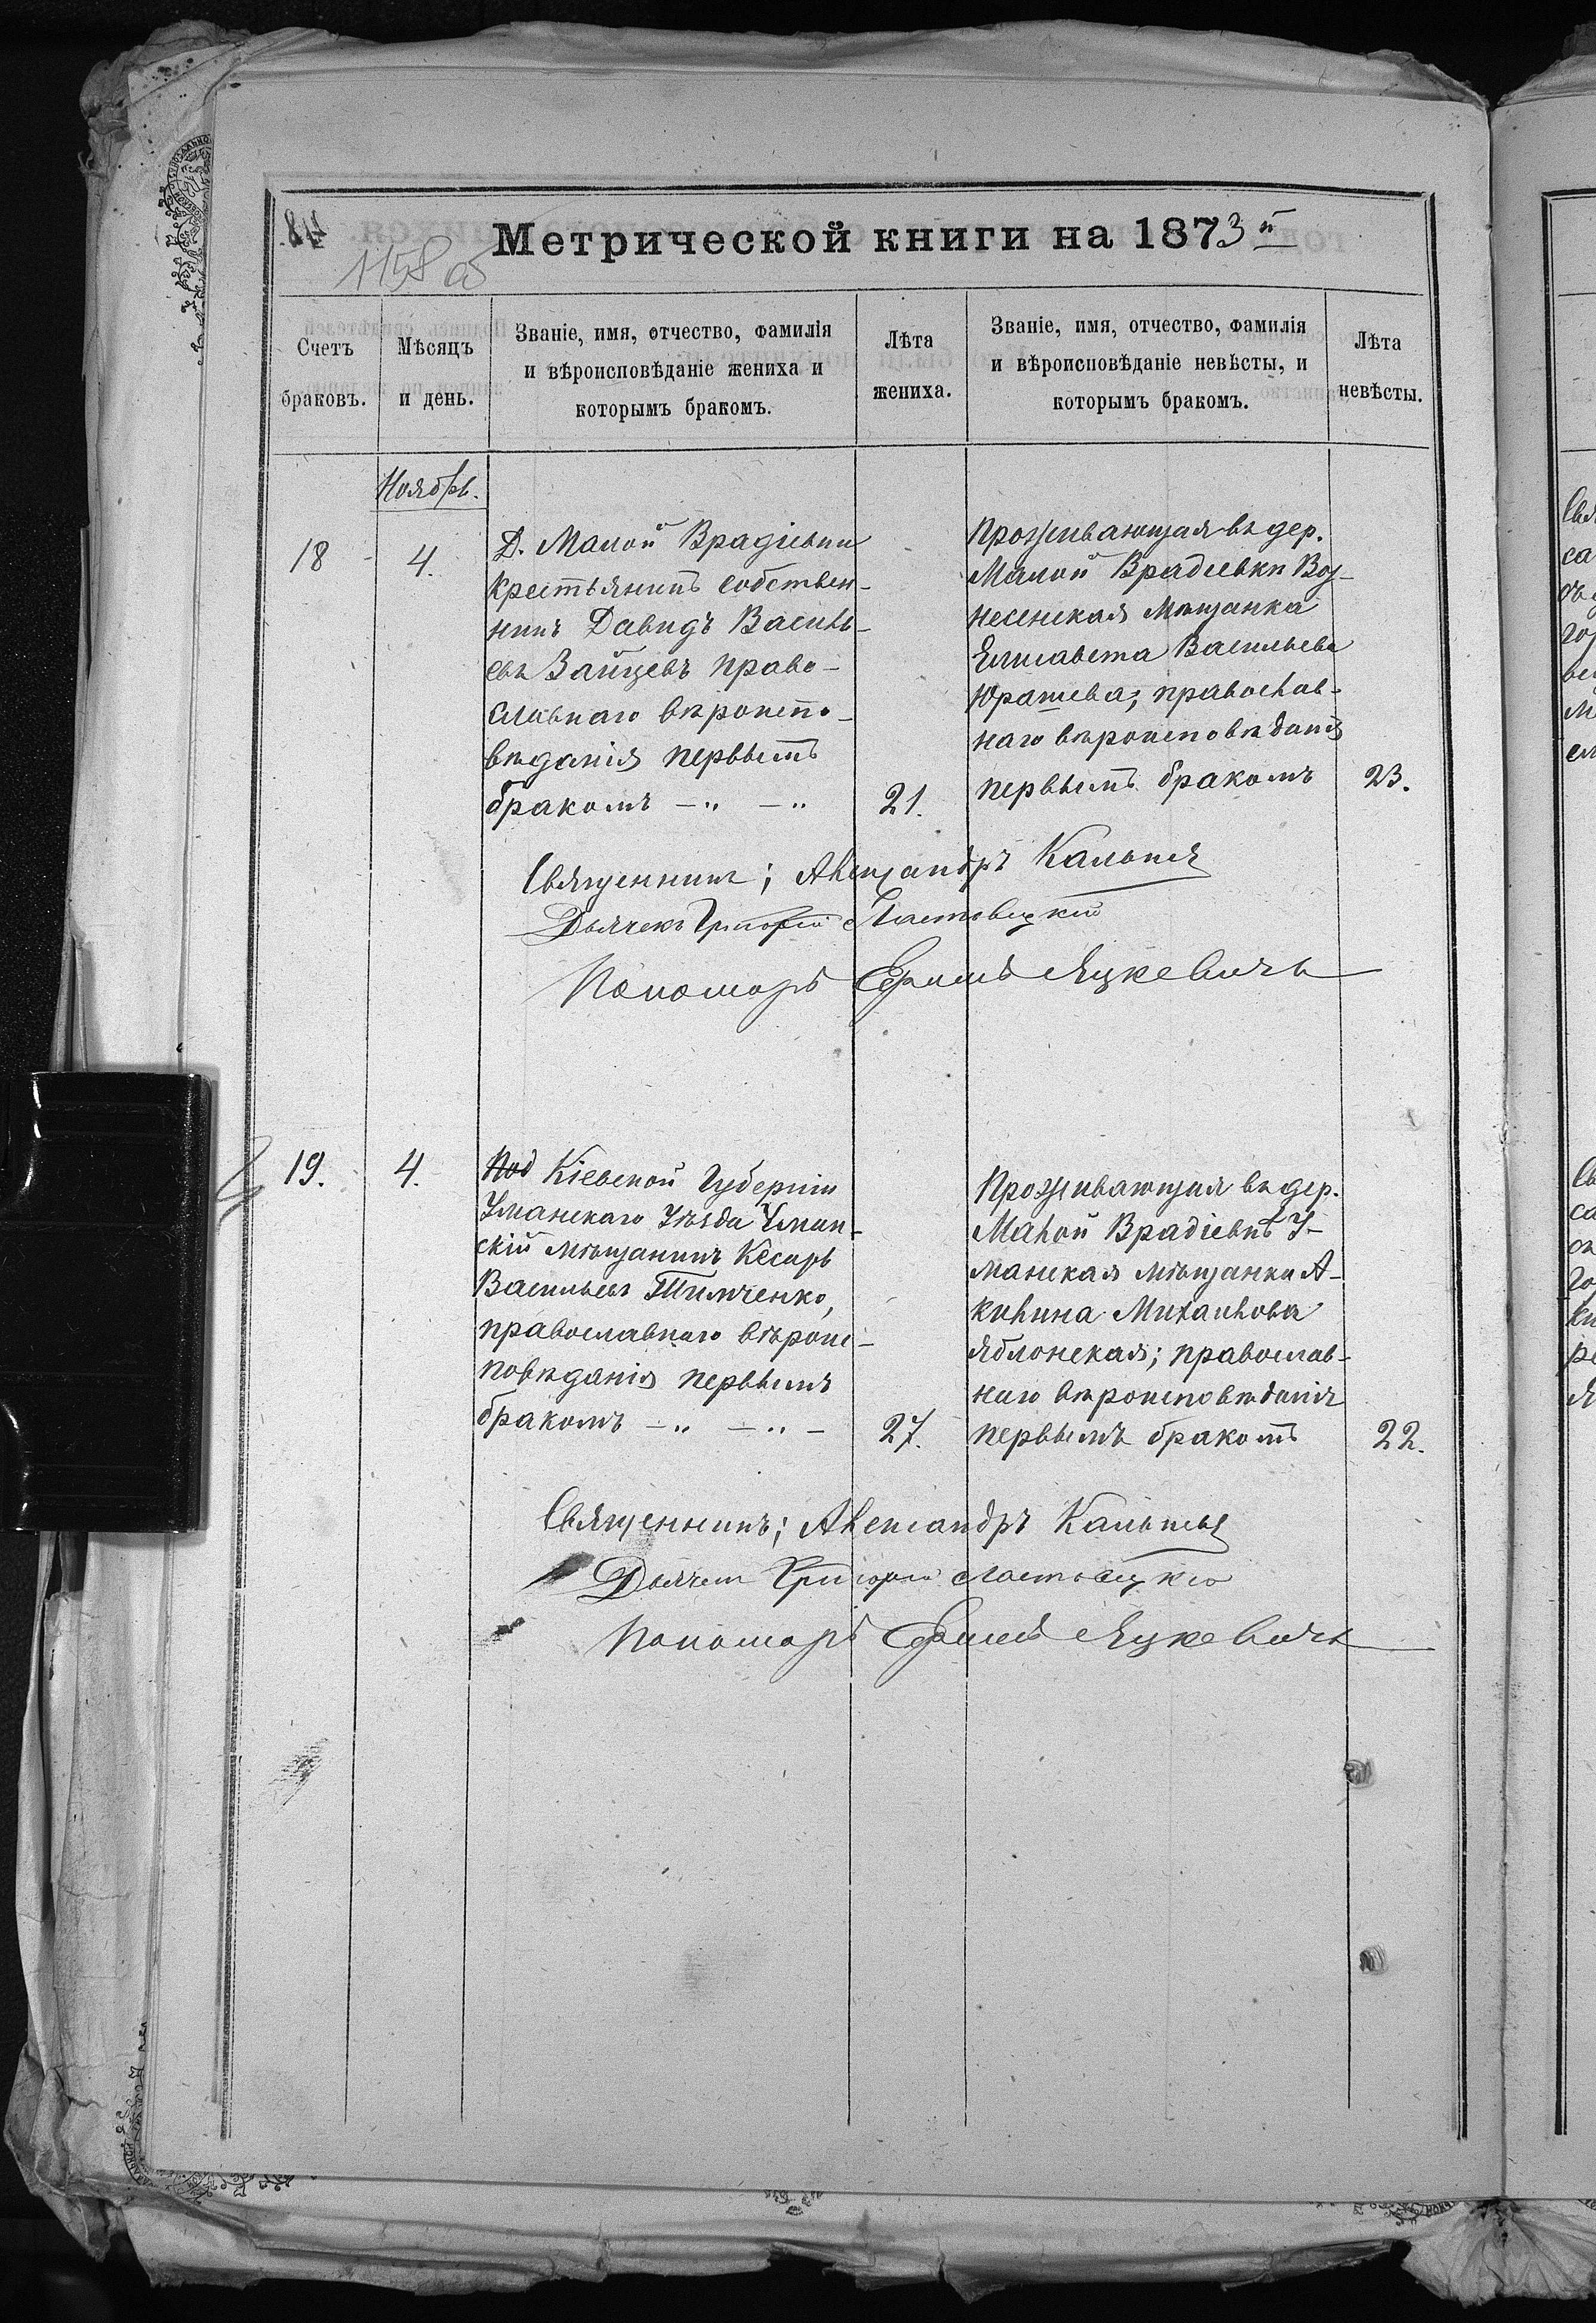 Метрической книги на 1873й
1158 об
Счетъ браковъ.
Мѣсяцъ и день.
Званіе, имя, отчество, фамилія и вѣроисповѣданіе жениха и которымъ бракомъ.
Лѣта жениха.
Званіе, имя, отчество, фамилія и вѣроисповѣданіе невѣсты, и которымъ бракомъ.
Лѣта невѣсты.
Ноябрь.
18
4.
Д. Малой Врадіевки
крестьянинъ собствен-
никъ Давидъ Василь-
евъ Зайцевъ право-
славнаго вѣроиспо-
вѣданія первымъ
бракомъ — „ — „
21.
Проживающая въ дер.
Малой Врадіевки Воз-
несенская Мѣщанка
Елисавета Васильева
Юрашева; православ-
наго вѣроисповѣданія
первымъ бракомъ
23.
Священникъ; Александръ
Дьячекъ Григорій Ластовецкій
Пономарь Ефимъ Яцкевичъ
19.
4.
Под Кіевской Губерніи
Уманскаго Уѣзда Уман-
скій мѣщанинъ Кесарь
Васильевъ Тимченко,
православнаго вѣроис-
повѣданія первымъ
бракомъ — „ — „ —
27.
Проживающая въ дер.
Малой Врадіевкѣ У-
манская мѣщанка А-
килина Михайлова
Яблонская; православ-
наго вѣроисповѣданія
первымъ бракомъ
22.
Священникъ; Александръ
Дьячекъ Григорій Ластовецкій
Пономарь Ефимъ Яцкевичъ